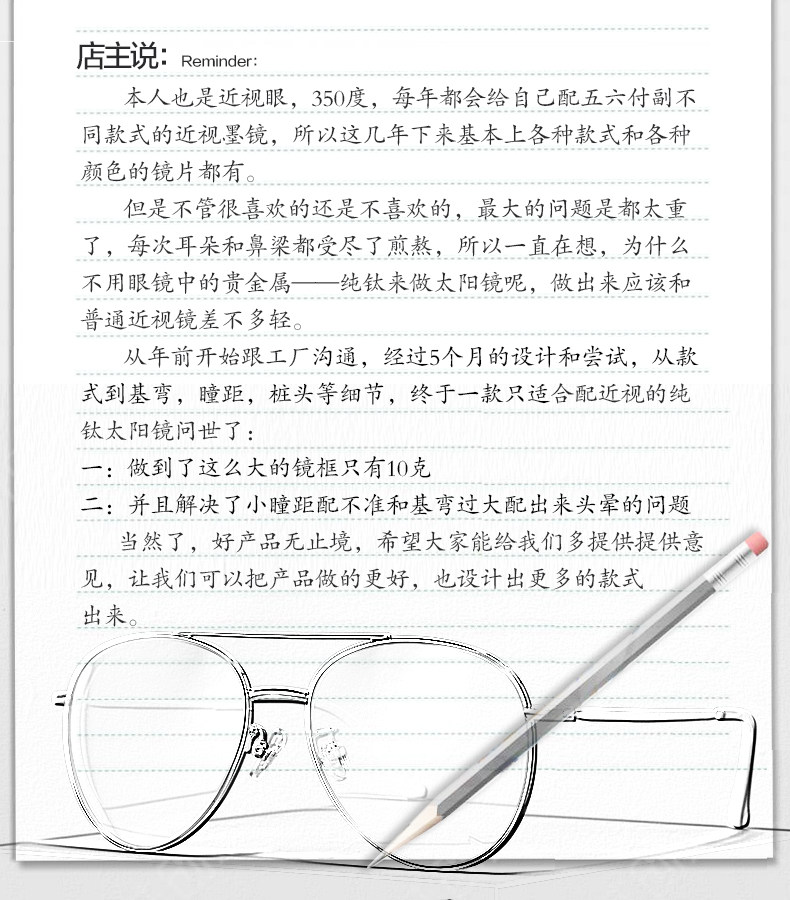 店主说： Reminder:
本人也是近视眼，350度，每年都会给自己配五六付副不
同款式的近视墨镜，所以这几年下来基本上各种款式和各种
颜色的镜片都有。
但是不管很喜欢的还是不喜欢的，最大的问题是都太重
了，每次耳朵和鼻梁都受尽了煎熬，所以一直在想，为什么
不用眼镜中的贵金属——纯钛来做太阳镜呢，做出来应该和
普通近视镜差不多轻。
从年前开始跟工厂沟通，经过5个月的设计和尝试，从款
式到基弯，瞳距，桩头等细节，终于一款只适合配近视的纯
钛太阳镜问世了：
一：做到了这么大的镜框只有10克
二：并且解决了小瞳距配不准和基弯过大配出来头晕的问题
当然了，好产品无止境，希望大家能给我们多提供提供意
见，让我们可以把产品做的更好，也设计出更多的款式
出来。